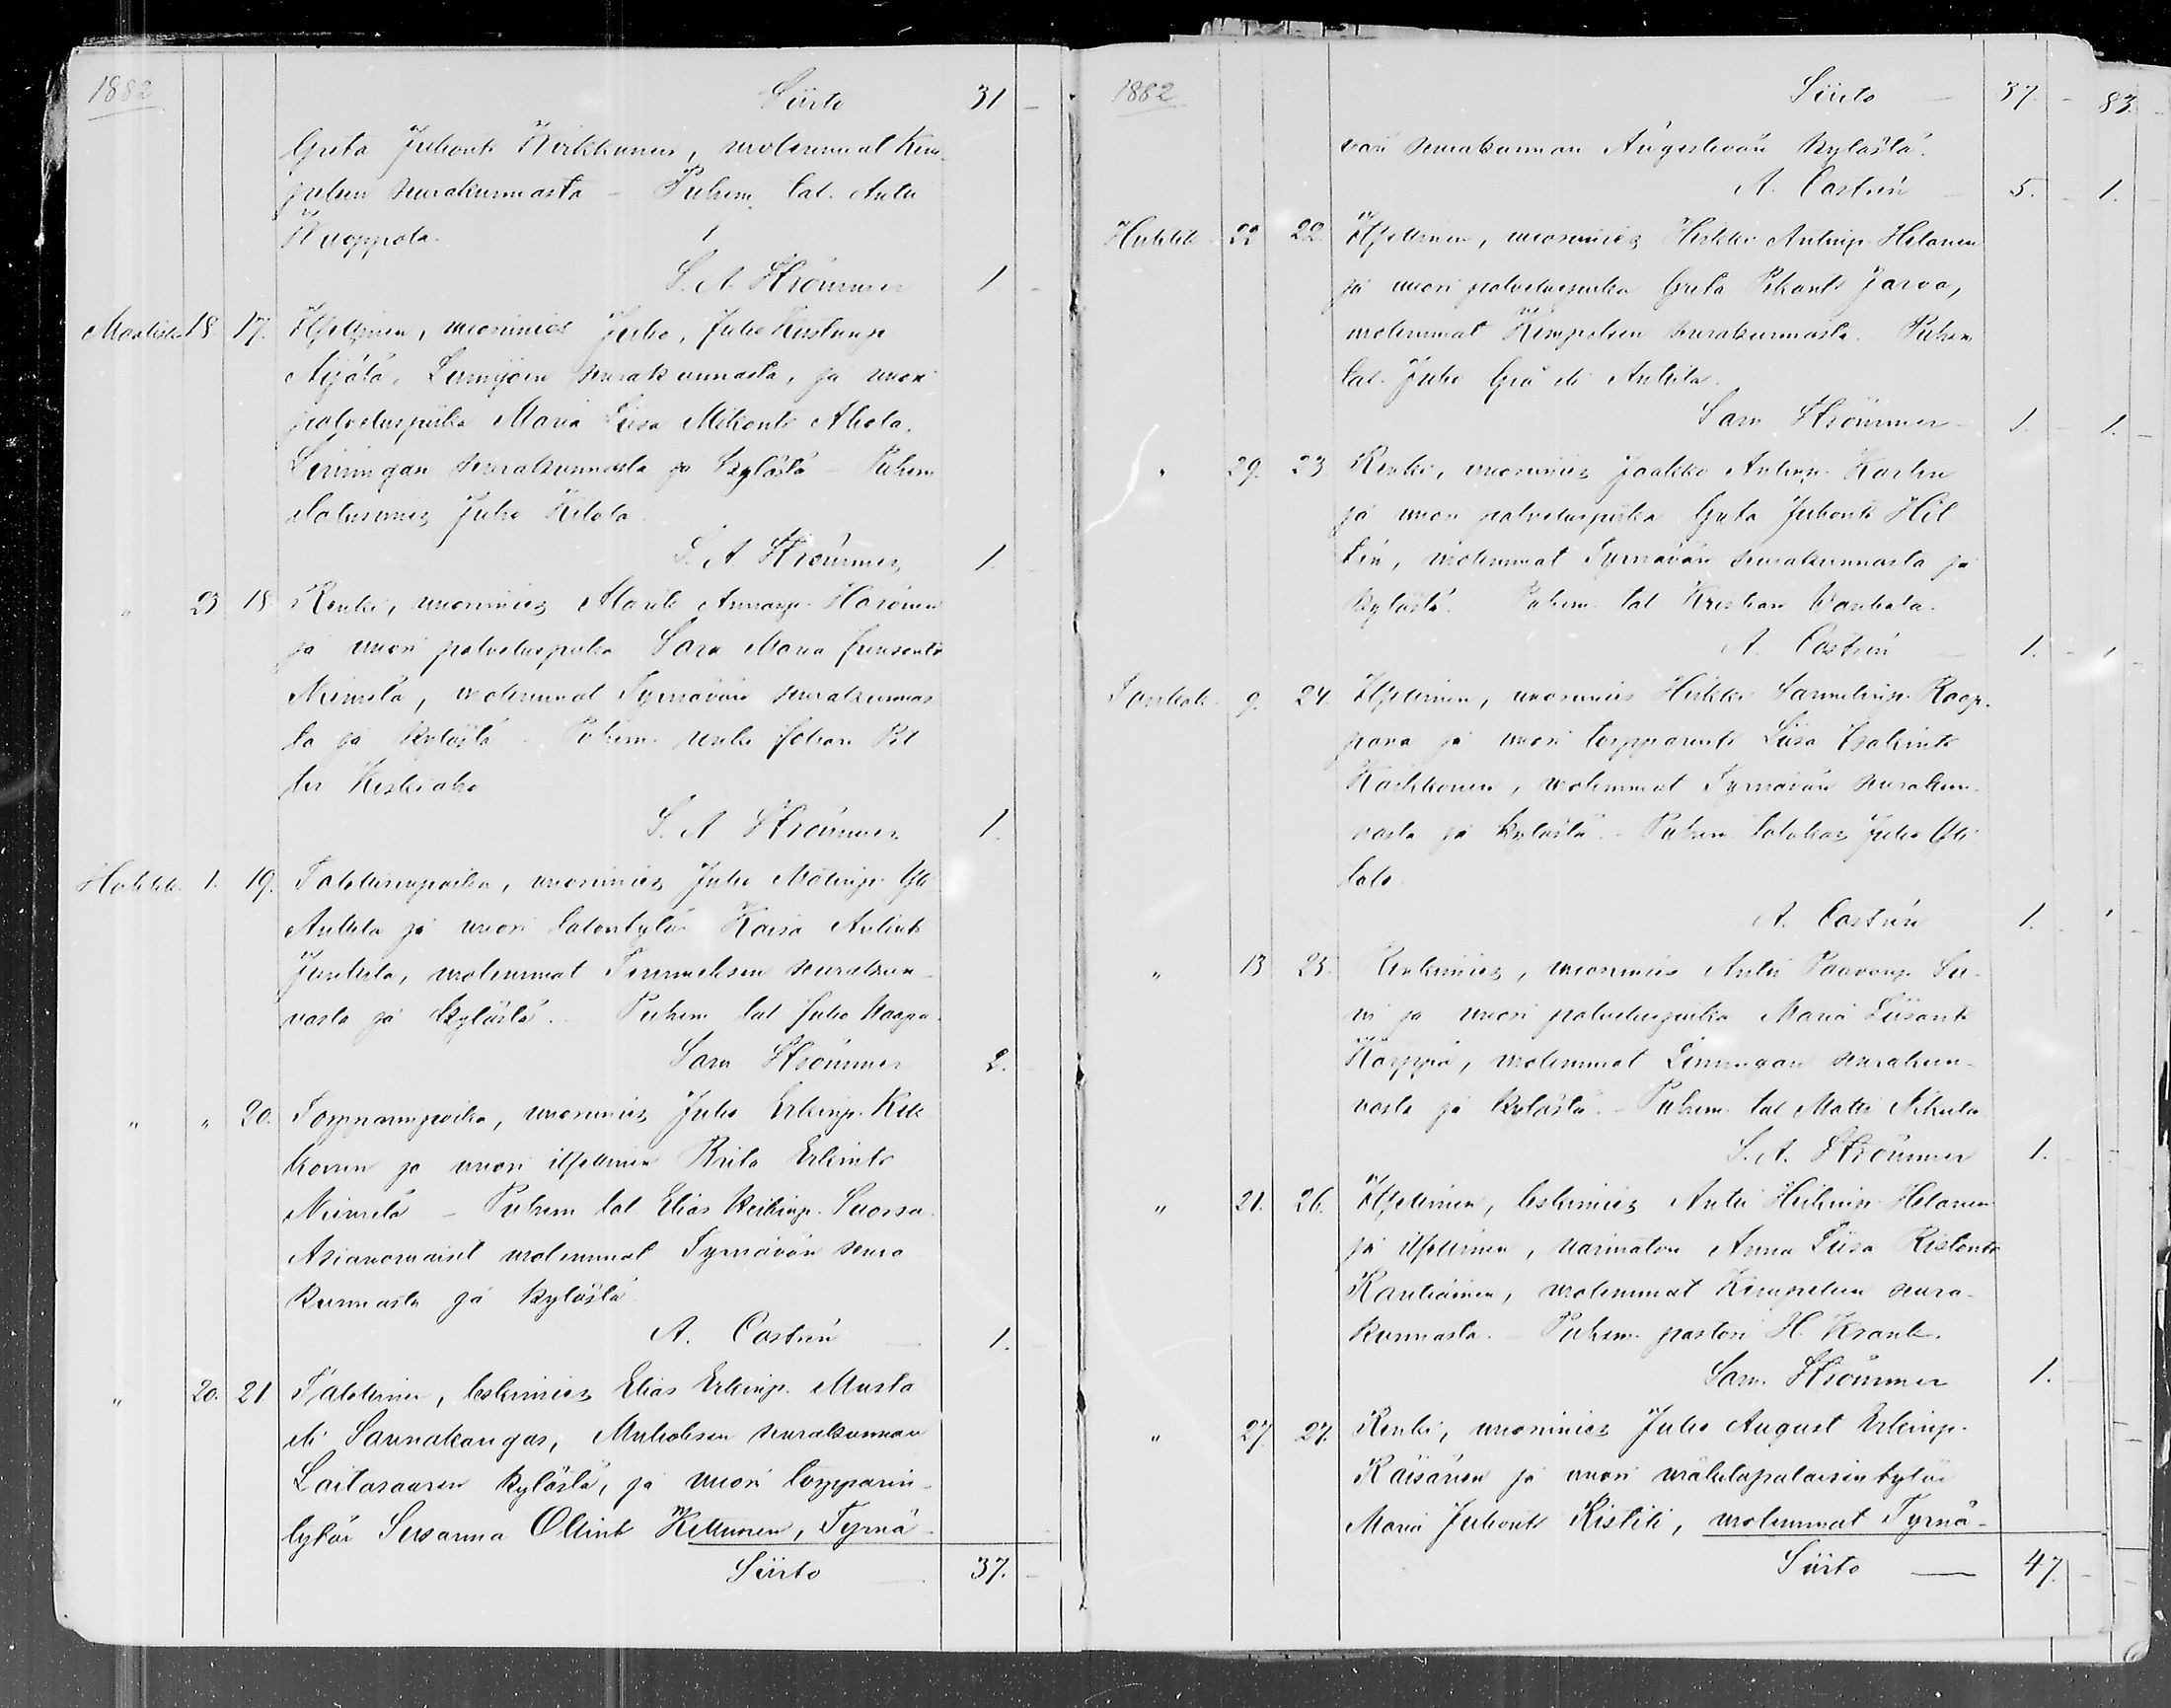 1882 Siirto 31 -
Greta Juhont. Kirkkunen, molemmat Kem-
pelsen seurakunnasta - Puhem. tal. Antti
Kuoppala.
S. A. Strömmer 1 -
Maalisk. 18. 17. Itsellinen, nuorimies Juho, Juho Kustaanp.
Nijälä, Lumijoen seurakunnasta, ja nuori
palveluspiika Maria Liisa Mikont. Ahola,
Limingan seurakunnasta ja kylästä - Puhem.
talusmies Juho Kilola
S. A. Strömmer 1.
" 23 18 Renki, nuorimies Matti Annanp. Harönen
ja nuori palveluspiika Sara Maria
Niemelä, molemmat Tyrnävän seurakunnas
ta ja kylästä - Puhem. renki Johan Pet
ter Keskiaho
S. A. Strömmer 1.
Huhtik. 1. 19. Talollisenpoika, nuorimies Juho Matinp. Yli
Anttila ja nuori talontytär Kaisa Antint.
Junttila, molemmat Temmeksen seurakun-
nasta ja kylästä. Puhem. tal Juho Haapa-
Sam Strömmer 2.
" " 20. Torpparinpoika, nuorimies Juho Erkinp. Kek
konen ja nuori itsellinen Brita Erkint.
Niemelä - Puhem tal. Elias Heikinp. Suorsa.
Asianomaiset molemmat Tyrnävän seura
kunnasta ja kylästä
A. Castrén 1.
" 20. 21 Talollinen, leskimies Elias Erkinp. Musta
eli Saunakangas, Muhoksen seurakunnan
Laitasaaren kylästä, ja nuori torpparin-
tytär Susanna Ollint. Kettunen, Tyrnä-
Siirto 37. -
1882 Siirto - 37. - 83.
vän seurakunnan Ängeslevän kylästä.
A. Castrén - 5. - 1.
Huhtik. 22 22. Itsellinen, nuorimies Heikki Antinp. Helanen
ja nuori palveluspiika Greta Pekant. Jarva,
molemmat Kempelsen seurakunnasta. Puhem.
tal. Juho Grå eli Anttila.
Sam Strömmer - 1. - 1. -
" 29. 23 Renki, nuorimies Jaakko Antinp. Karlin
ja nuori palveluspiika Greta Juhont. Hil
tin, molemmat Tyrnävän seurakunnasta ja
kylästä. Puhem. tal Kristian Wanhala.
A. Castrén 1. -
Toukok. 9. 24 Itsellinen, nuorimies Heikki Samulinp. Raap-
pana ja nuori torpparint. Liisa Isakint.
Karhkonen, molemmat Tyrnävän seurakun-
nasta ja kylästä. - Puhem. talokas Juho Yli
talo.
A. Castrén 1.
" 13 25. Renkimies, nuorimies Antti Paavonp. Su-
vi ja nuori palveluspiika Maria Liisant.
Karppa, molemmat Limingan seurakun-
nasta ja kylästä. - Puhem. tal Matti Nikula
S. A. Strömmer 1.
" 21. 26. Itsellinen, leskimies Antti Heikinp. Helanen
ja itsellinen, naimaton Anna Liisa Ristont.
Kantiainen, molemmat Kempelsen seura-
kunnasta. - Puhem. pastori H. Krank.
Sam. Strömmer 1.
" 27. 27. Renki, nuorimies Juho August Erkinp.
Räisänen ja nuori mäkitupalaisentytär
Maria Juhont. Ristiki, molemmat Tyrnä-
Siirto - 47. -